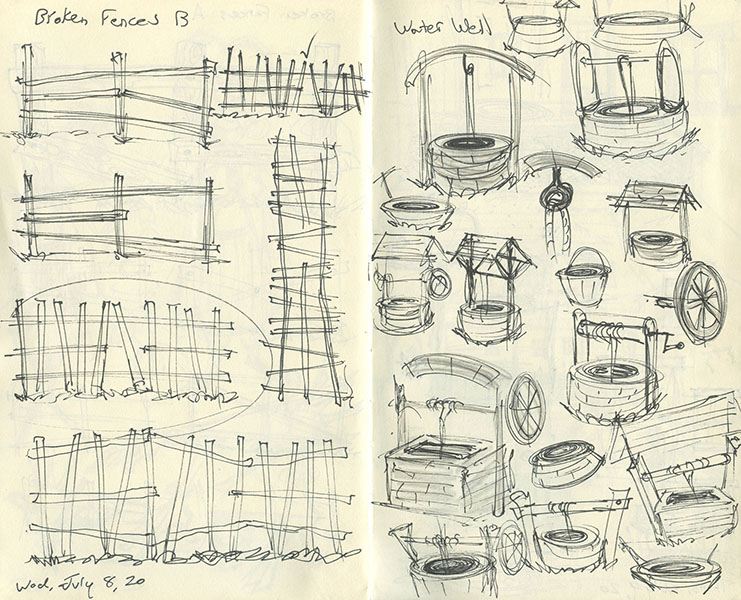 Broken Fences B
Water Well
Wed, July 8, 20